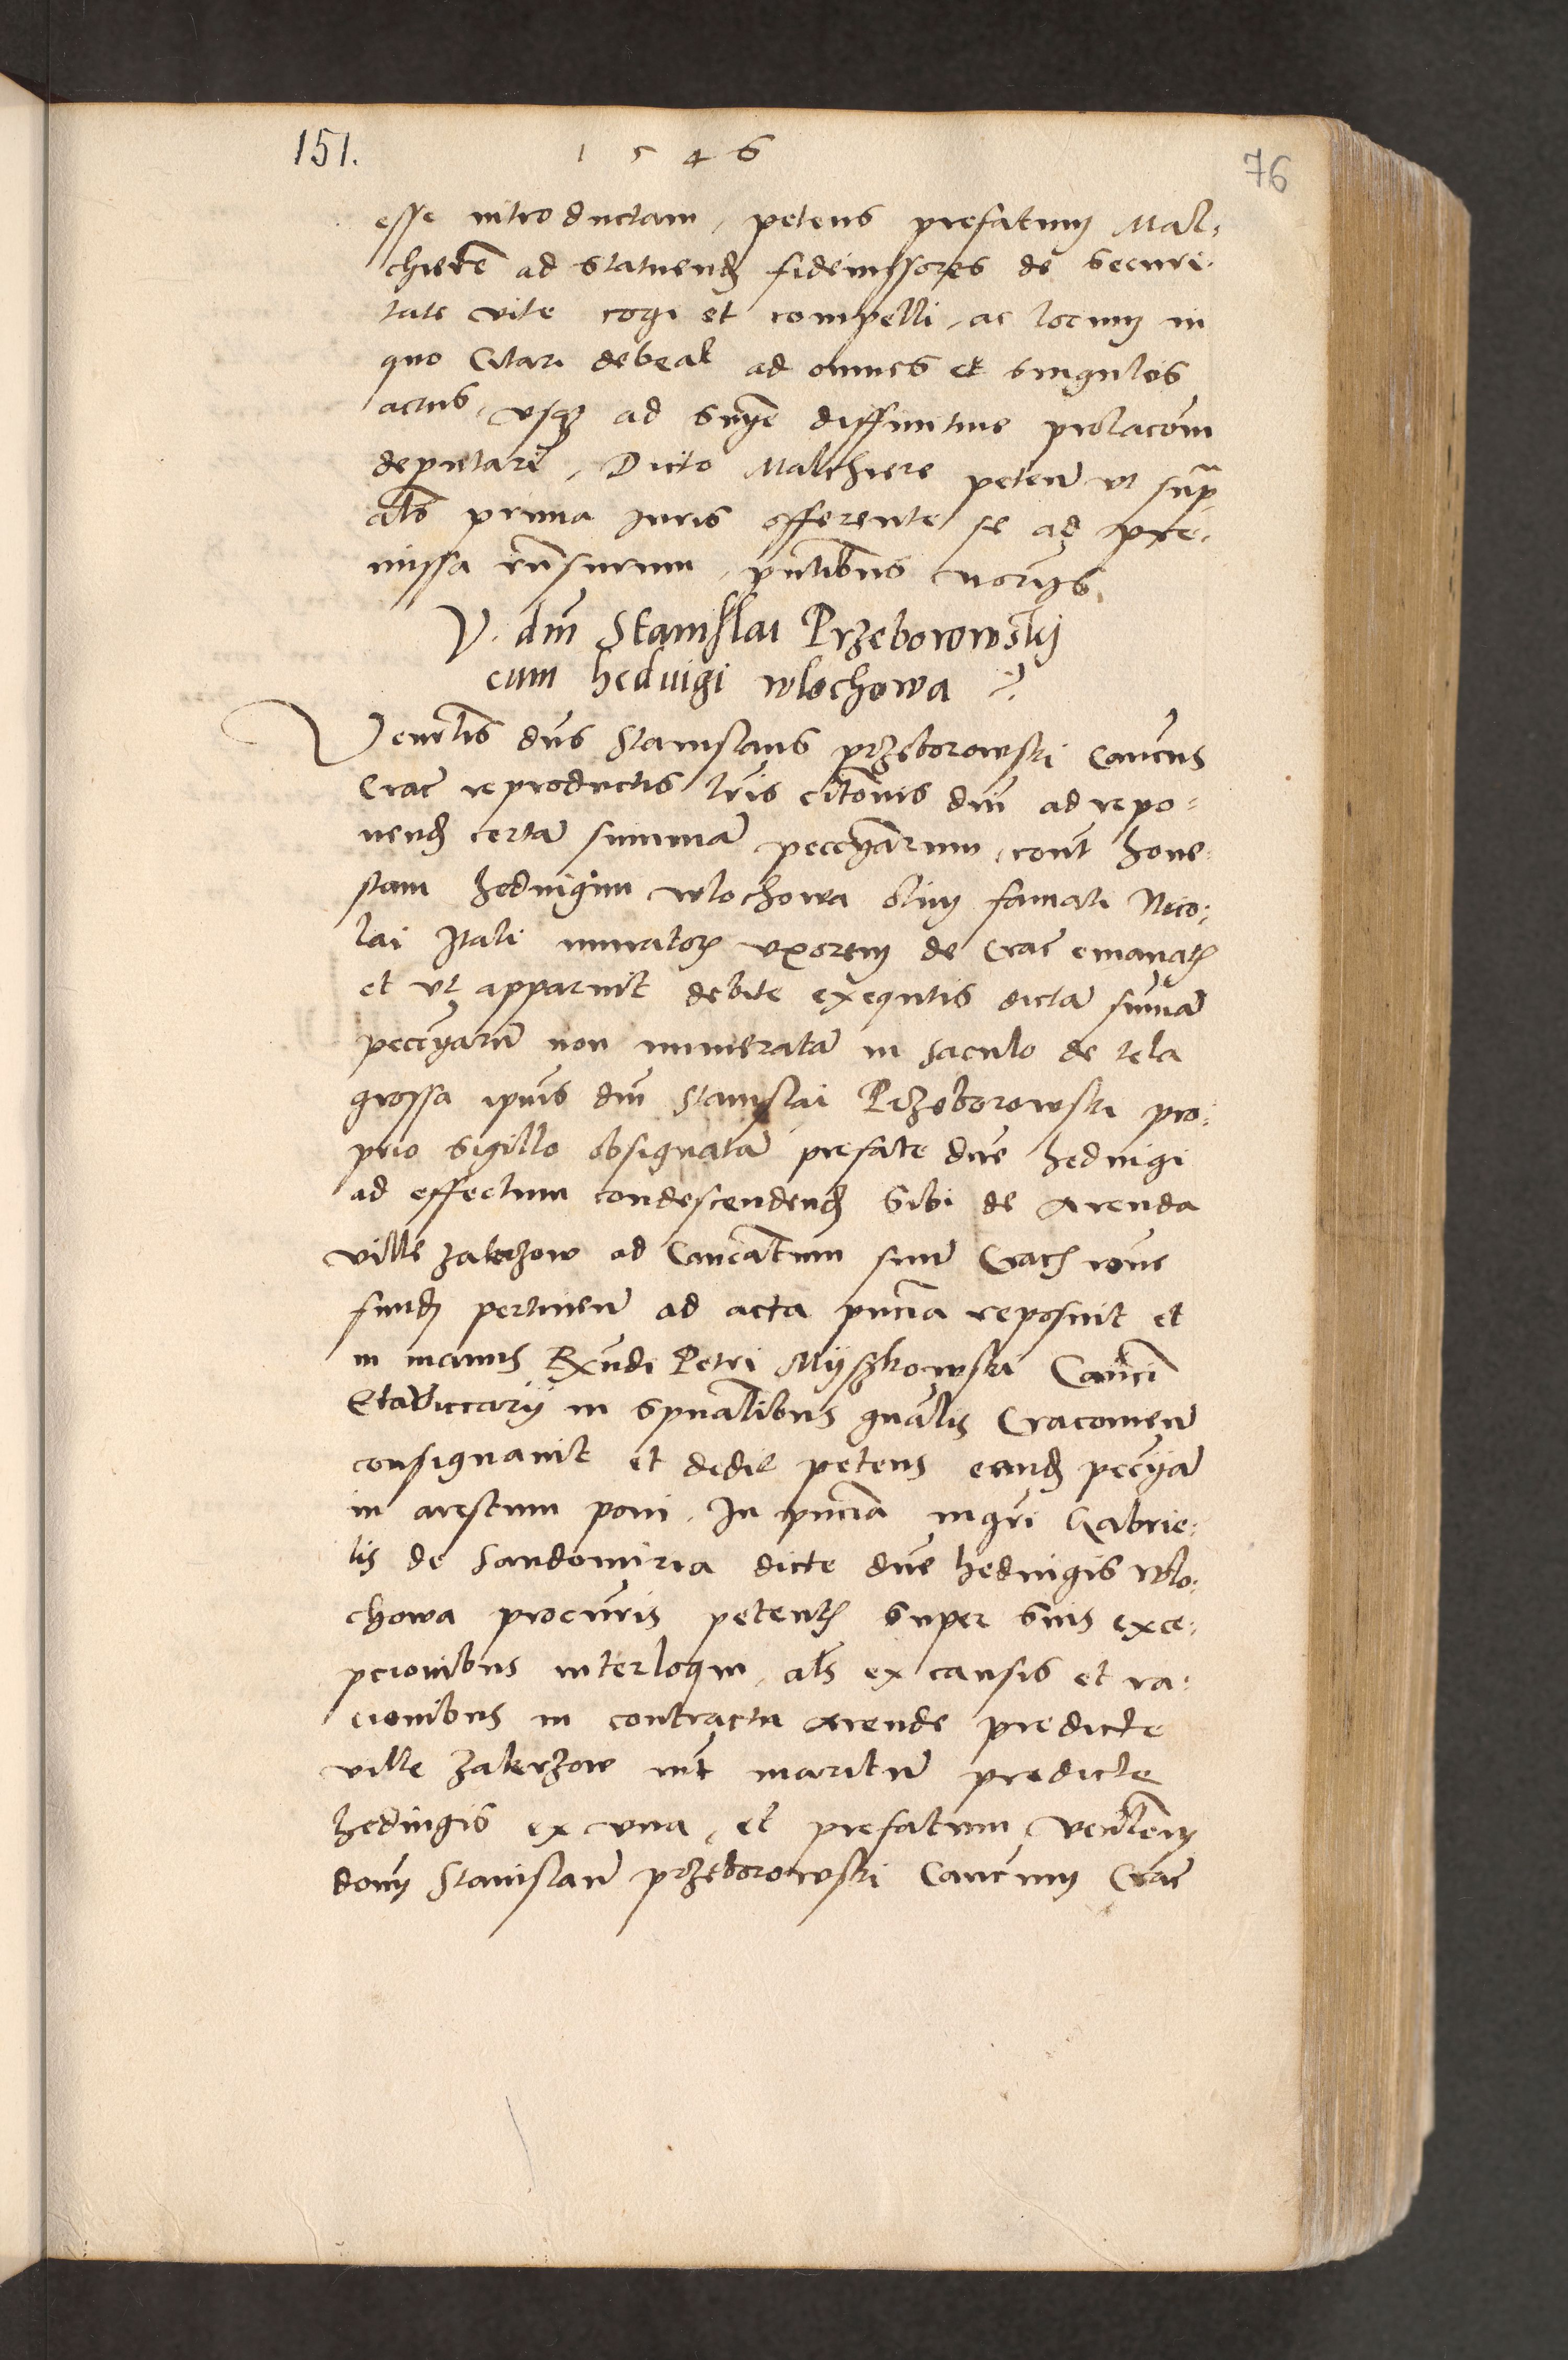 151.
1546
76
esse introductam, petens prefatum Mal-
chierē ad statuend fideiussores de securi-
tate vite cogi et compelli, ac locum in
quo Citari debeat ad omnes et singulos
actus, vsq ad snīe diffinitive prolacom
deputari, Dicto Malchiere peteñ vt supra
als prima Iuris offerente se ad pre-
missa rñsurum, pntibus quor.
V. dni Stanislai Przeborowskij
cum heduigi wlochowa
Venrlis dns Stanislaus przeborowski Canūs
Crac reproductis lris citonis dni ad repo-
nend certā summā peccuyarum, cont hone-
stam heduigim wlochowa olim famati Nico-
lai Itali muratoris vxorem de Crac emanat
et vt apparuit debite exequtis dictā summā
peccuyarū non numeratā in saculo de tela
grossa ipsius dni Stanislai Przeborowski pro-
prio sigillo obsignatā prefate dne heduigi
ad effectum condescendend sibi de arenda
ville zakrzow ad Canōcatum suum Crac rone
fundi pertineñ ad acta pntia reposuit et
in manus Rxndi Petri Myszkowski Canōci
Et Viccarij in spualibus gnalis Cracovień
consignavit et dedit petens eand pecuyā
in arestum poni, In pntia mgri Gabrie-
lis de Sandomiria dicte dne heduigis wlo-
chowa procuris petent super suis exce-
pcionibus interloqui, als ex causis et ra-
cionibus in contractu arende predicte
ville zakrzow int maritum predicte
heduigis ex vna, et prefatum, venrlem
dnum Stanislaum przeborowski Canōcum Crac